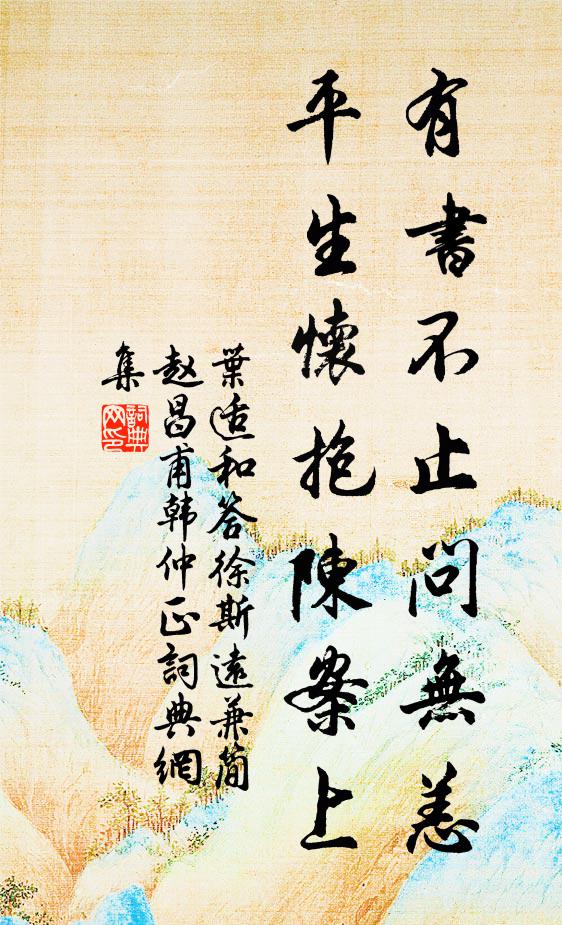 有書不止問無恙
平生懷抱陳案上
葉适和答徐斯遠兼簡
赵昌甫韩仲正詞典網
集
詞典
网印